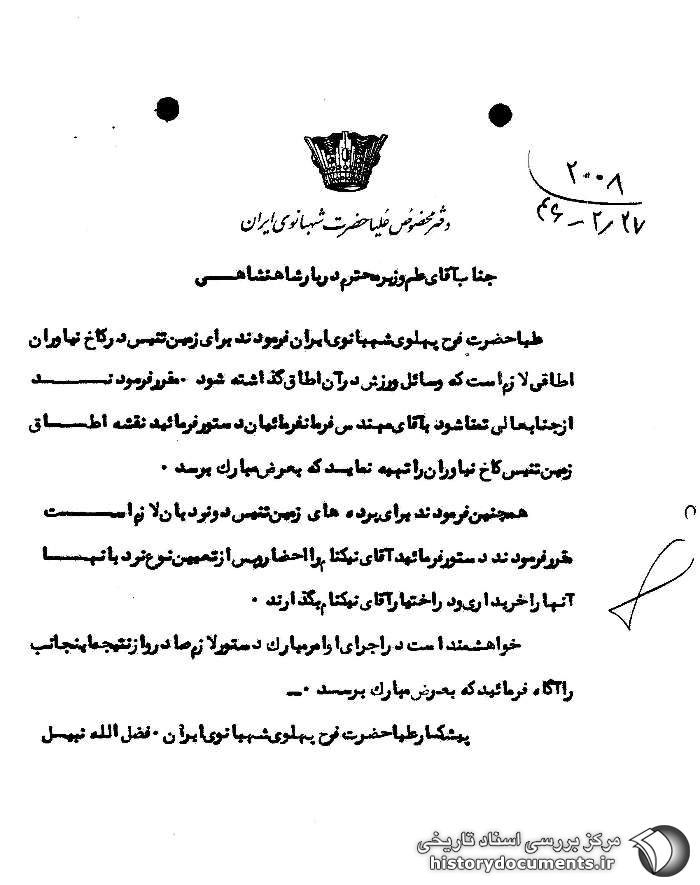 ۲۰۰۸
۴۶ – ۲/۲۷
دفتر مخصوص علیاحضرت شهبانوی ایران
جناب آقای علم وزیر محترم دربار شاهنشاهی
علیاحضرت فرح پهلوی شهبانوی ایران فرمودند برای زمین تنیس در کاخ نیاوران
اطاقی لازم است که وسائل ورزش در آن اطاق گذاشته شود . مقرر فرمودند
از جنابعالی تمنا شود بآقای مهندس فرمانفرمائیان دستور فرمائید نقشه اطاق
زمین تنیس کاخ نیاوران را تهیه نماید که بعرض مبارك برسد .
همچنین فرمودند برای پرده های زمین تنیس دو نردبان لازم است
مقرر فرمودند دستور فرمائید آقای نیکنام را احضار و پس از تعیین نوع نردبانها
آنها را خریداری و در اختیار آقای نیکنام بگذارند .
خواهشمند است در اجرای اوامر مبارك دستور لازم صادر و از نتیجه اینجانب
را آگاه فرمائید که بعرض مبارك برسد .
پیشکار علیاحضرت فرح پهلوی شهبانوی ایران . فضل الله نبیل
مرکز بررسی اسناد تاریخی
historydocuments.ir